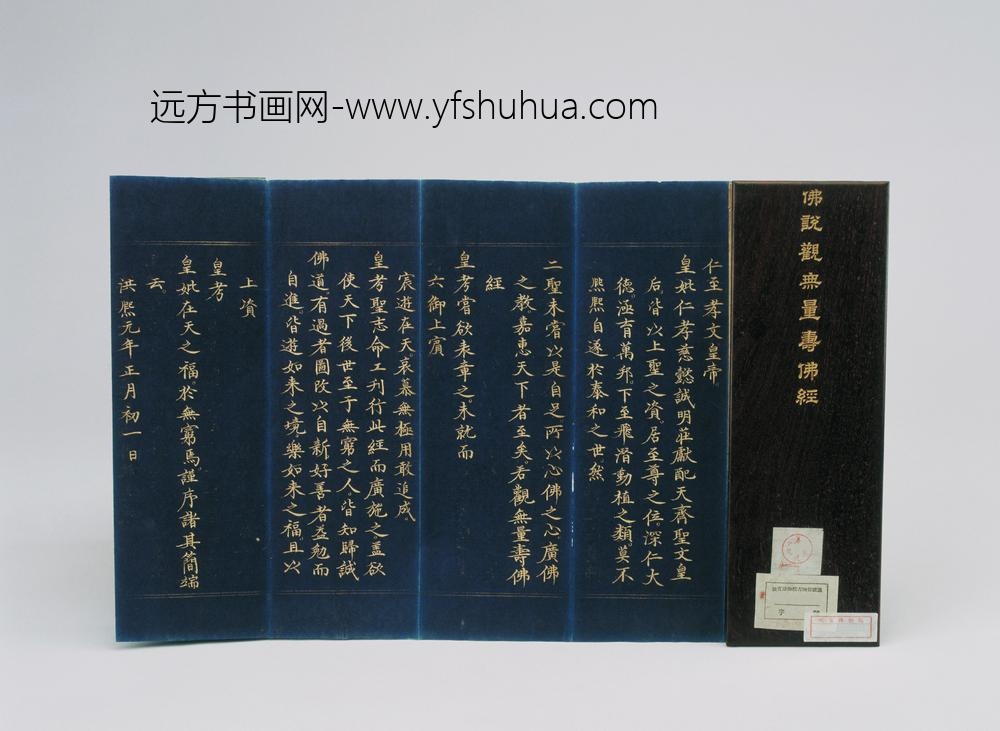 远方书画网-www.yfshuhua.com
佛說觀無量壽佛經
仁至孝文皇帝。
皇妣仁孝慈懿誠明莊獻配天齊聖文皇
后。皆以上聖之資。居至尊之位。深仁大
德。涵育萬邦。下至飛潛動植之類。莫不
熙熙自遂於泰和之世。然
二聖未嘗以是自足。所以心佛之心。廣佛
之教。嘉惠天下者至矣。若觀無量壽佛
經
皇考嘗欲表章之。未就而
六御上賓
宸遊在天。哀慕無極。用敢追成
皇考聖志。命工刊行此經而廣施之。蓋欲
使天下後世至于無窮之人。皆知歸誠
佛道。有過者圖改以自新。好善者益勉而
自進。皆遊如來之境。樂如來之福。且以
上資
皇考
皇妣在天之福。於無窮焉。謹序諸其簡端
云。
洪熙元年正月初一日